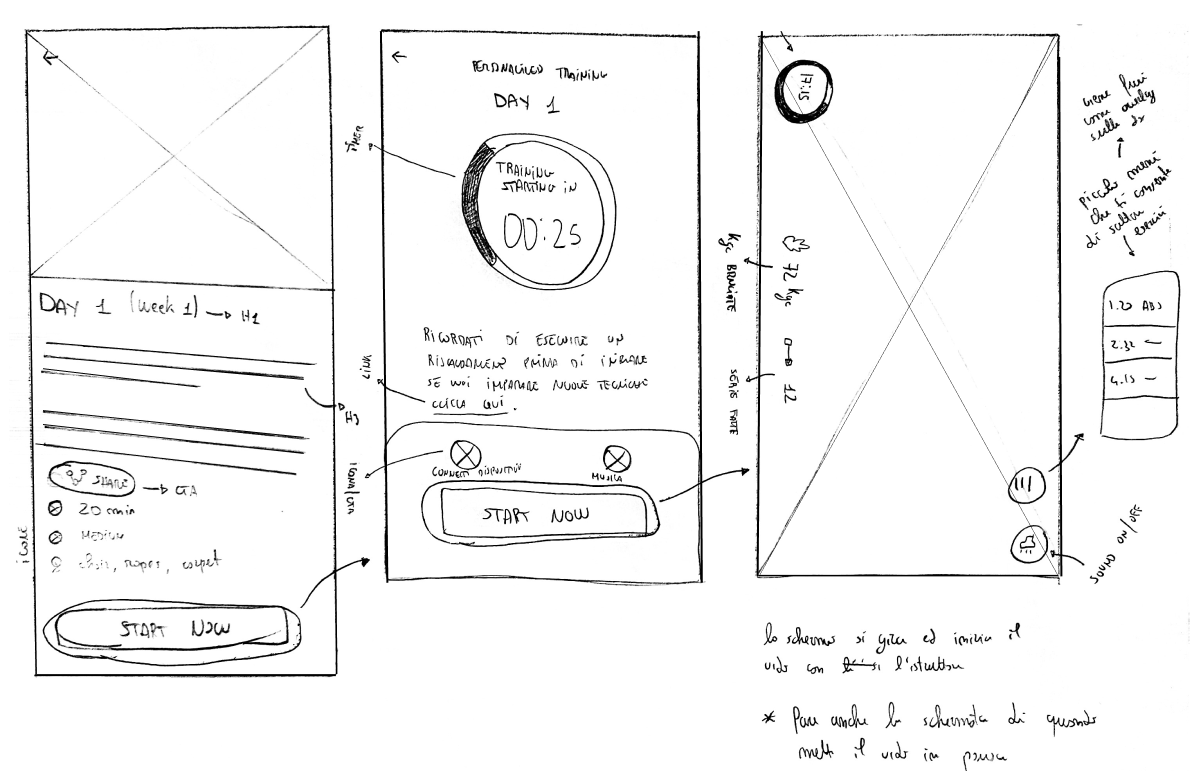 DAY 1 (week 1) → H1
H3
SHARE → CTA
20 min
MEDIUM
chair, ropes, carpet
START NOW
icone
PERSONALIZED TRAINING
DAY 1
TIMER
TRAINING
STARTING IN
00:25
RICORDATI DI ESEGUIRE UN
RISCALDAMENTO PRIMA DI INIZIARE
SE VUOI IMPARARE NUOVE TECNICHE
CLICCA QUI.
LINK
CONNETTI DISPOSITIVO
MUSICA
ICONA/CTA
START NOW
17:15
72 Kgc
Kgc BRUCIATE
12
SERIE FATTE
viene fuori
come overlay
sulla dx
piccolo menù
che ti consente
di saltare
esercizi
1.20 ABS
2.32
4.15
SOUND ON/OFF
lo schermo si gira ed inizia il
video con l'istruttore
* Fare anche la schermata di quando
metti il video in pausa